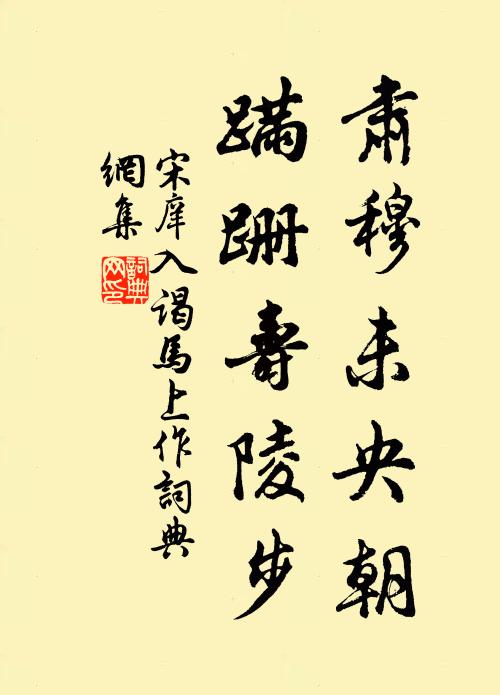 肅穆未央朝
蹣跚壽陵步
宋庠入謁馬上作詞典
網集
詞典
网印